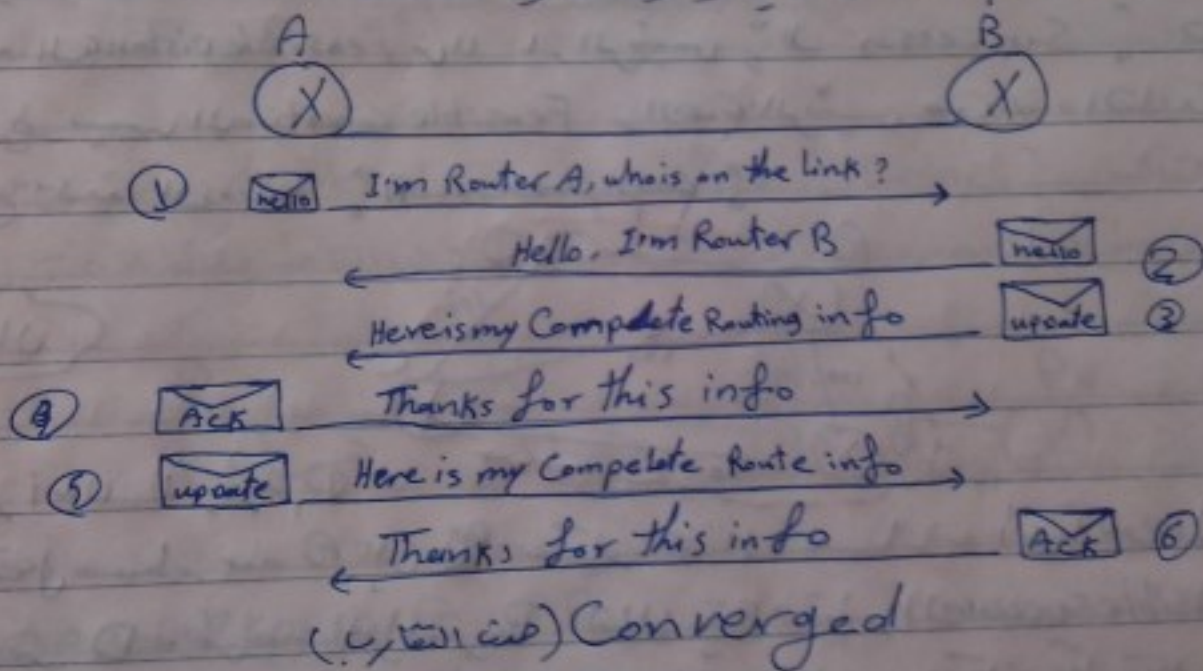 A B
X X
① hello I'm Router A, whois on the Link ?
Hello, I'm Router B hello ②
Here is my Complete Routing info update ③
④ ACK Thanks for this info
⑤ update Here is my Compelete Route info
Thanks for this info ACK ⑥
Converged